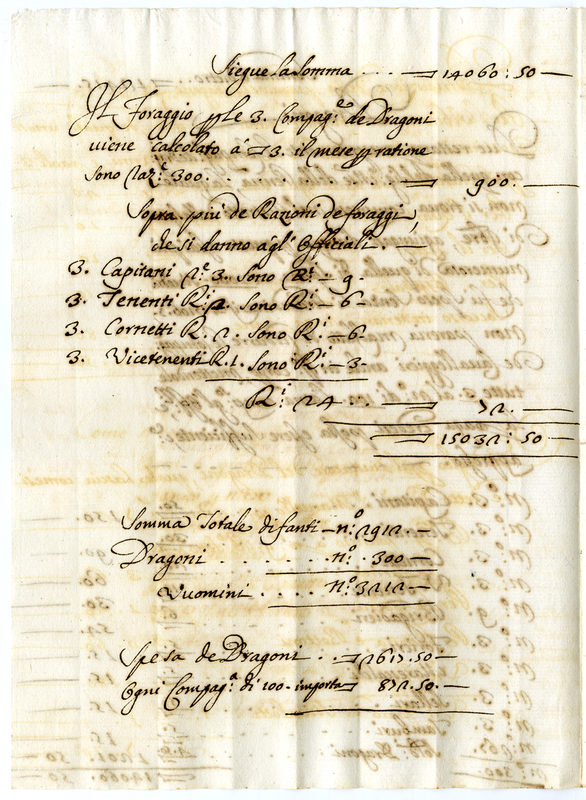 Siegue la Somma . . . — 14060 : 50 —
Il Foraggio p le 3. Compag.e de Dragoni
viene calcolato à 3. il mese p ratione
sono Raz.e 300. . . . . . . . . . . . 900. —
Sopra più de Razioni de foraggi,
che si danno àgl' Officiali. —
3. Capitani R.e 3. sono R.i — 9 -
3. Tenenti R.i 2. sono R.i — 6 -
3. Cornetti R. 2. sono R.i — 6 -
3. Vicetenenti R. 1. sono R.i — 3 -
R.i 24 . . . — 72. —
— 15032 : 50 —
Somma Totale di fanti — n.o 2912. —
Dragoni . . . . . . n.o . 300 —
Vuomini . . . . n.o 3212 —
Spesa de Dragoni . . — 2617. 50 —
Ogni Compag.a di 100 - importa 872. 50. —